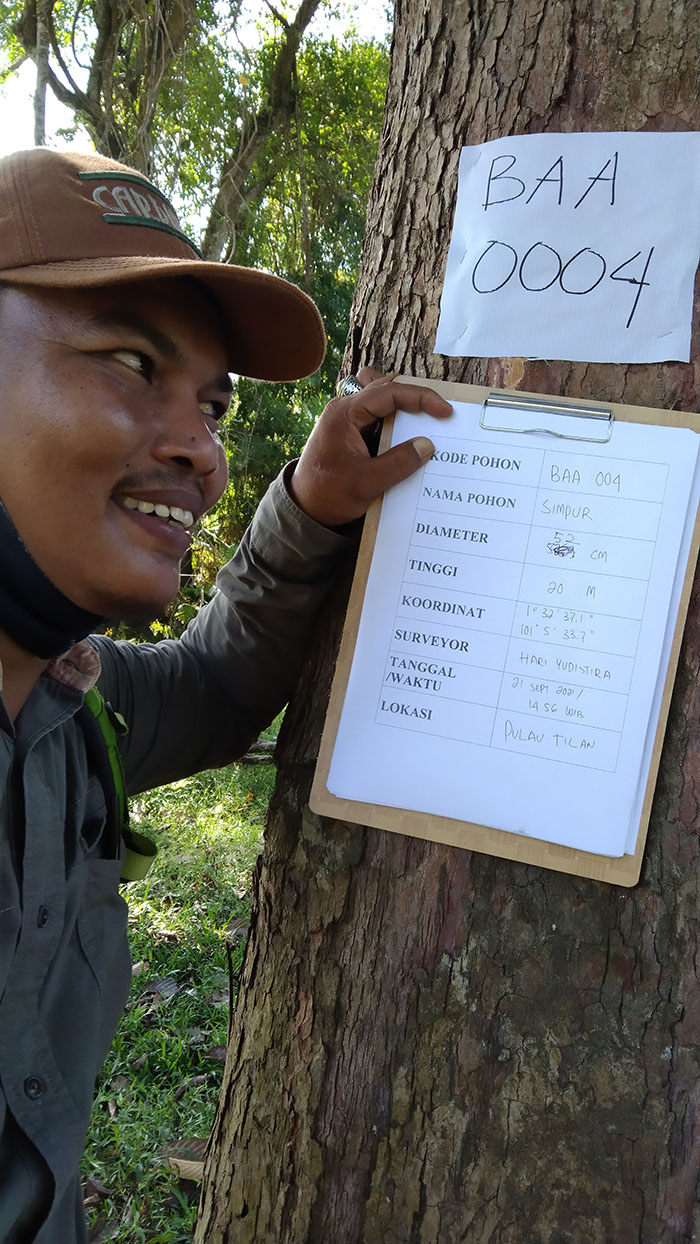 BAA
0004
KODE POHON BAA 004
NAMA POHON SIMPUR
DIAMETER 52 CM
TINGGI 20 M
KOORDINAT 1° 32' 37.1"
101° 5' 33.7"
SURVEYOR HARI YUDISTIRA
TANGGAL 21 SEPT 2021/
/WAKTU 14 56 WIB
LOKASI PULAU TILAN